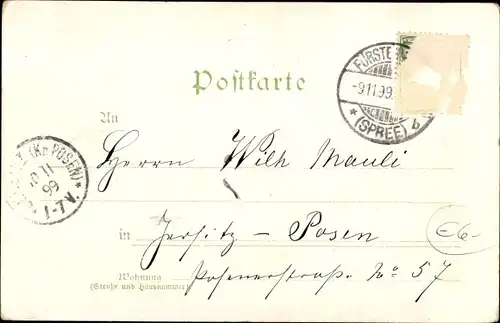 Postkarte
FÜRSTE
-9.11.99.
* (SPREE) b
An
Herrn Wilh Mauli
(Kr. POSEN) *
11
99
1-7V.
in Jersitz-Posen
Wohnung Posenerstraße. No 57
(Straße und Hausnummer)